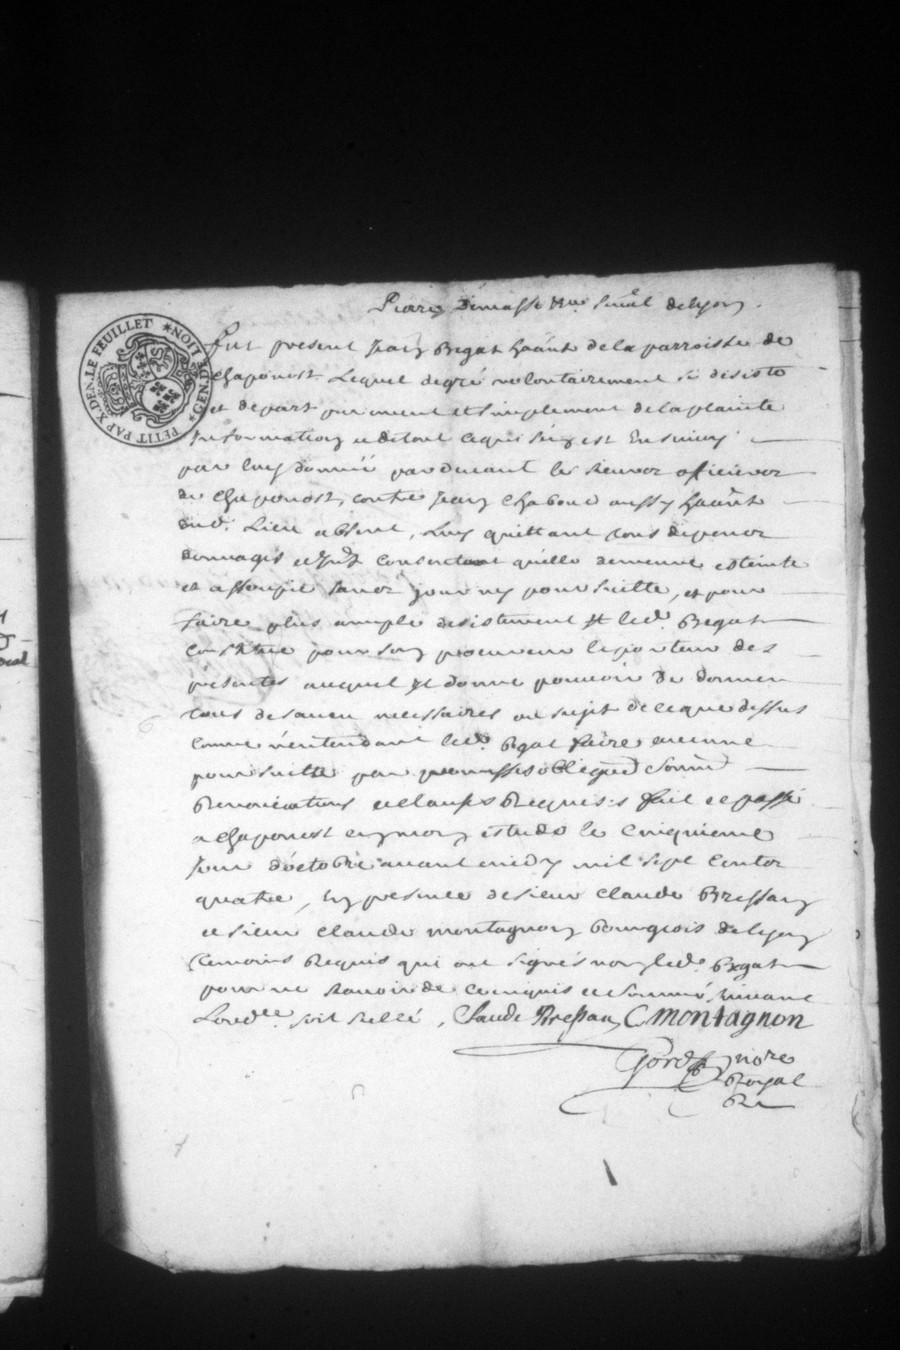 PETIT PAP X DEN. LE FEUILLET ★ GEN. DE LION ★
delyon
fut present Jean Begat habitt de la parroisse de
Chaponost Lequel degré volontairement se desiste
et depart purement et simplement de la plainte
Information et de tout ce qui s'en est Ensuivy
par luy donnée pardevant les sieurs officiers
de Chaponost, contre Jean Chabout aussy habitt
dud. Lieu absent, Luy quittant tous depens
dommages et Intts consentant qu'elle demeure esteinte
et assoupie sans pour suitte, et pour
faire plus ample desistement led. Begat
Constitue pour son procureur le porteur des
presentes auquel Il donne pouvoir de donner
tous desaveu necessaires au sujet de ce que dessus
Comme n'entendant led. Begat faire aucune
poursuitte par promesses obligeant
Renonciations et clauses Requises fait et passé
a Chaponost en mon estude le Cinquieme
Jour d'octobre avant midy mil sept Cents
quatre, En presence de sieur Claude Bressan
et sieur Claude montagnon Bourgeois de Lyon
temoins Requis qui ont signés non led. Begat
pour ne scavoir de ce enquis et sommé, suivant
Lord.ce soit scellé, Claude Bressan C montagnon
nore
Royal